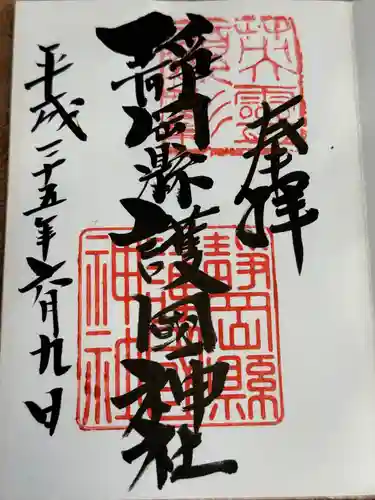 奉拝
靜岡縣護國神社
平成二十五年六月九日
英霊
靜岡縣
護國
神社